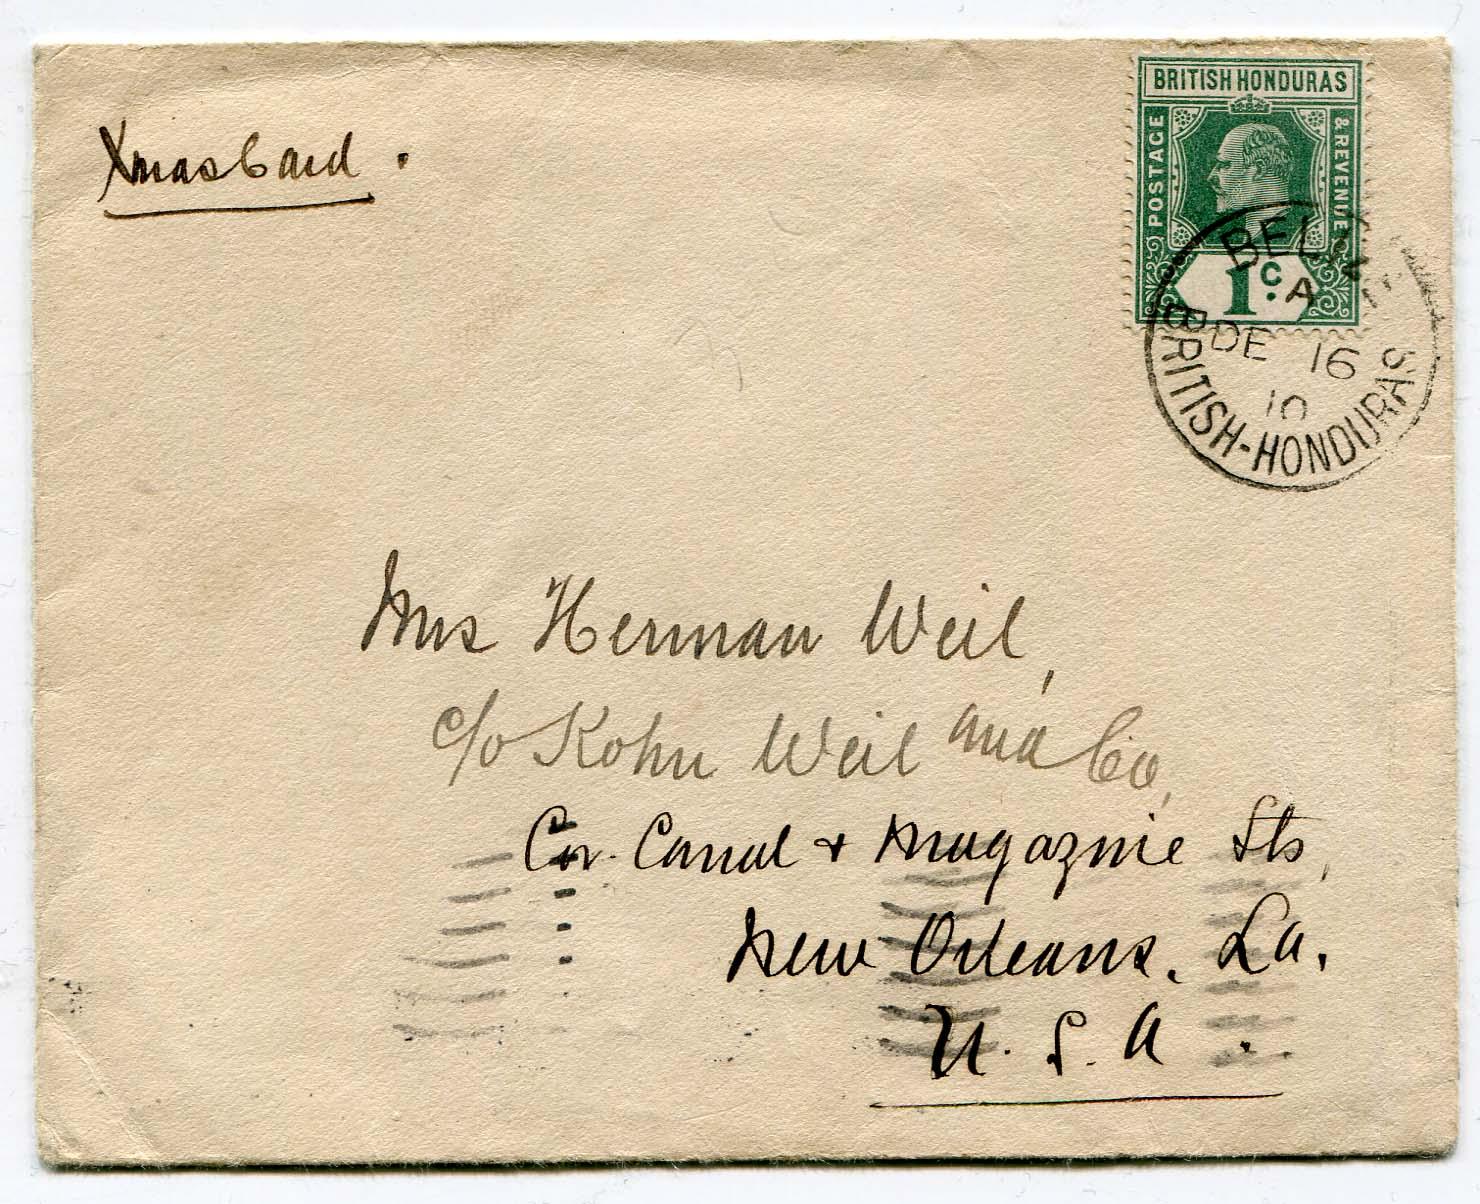 Xmas Card.
BRITISH HONDURAS
POSTAGE & REVENUE
1c.
BELIZE
A
DE 16
10
BRITISH-HONDURAS
Mrs Herman Weil,
c/o Kohn Weil and Co,
Cor. Canal + Magazine Sts,
New Orleans. La.
U. S. A.